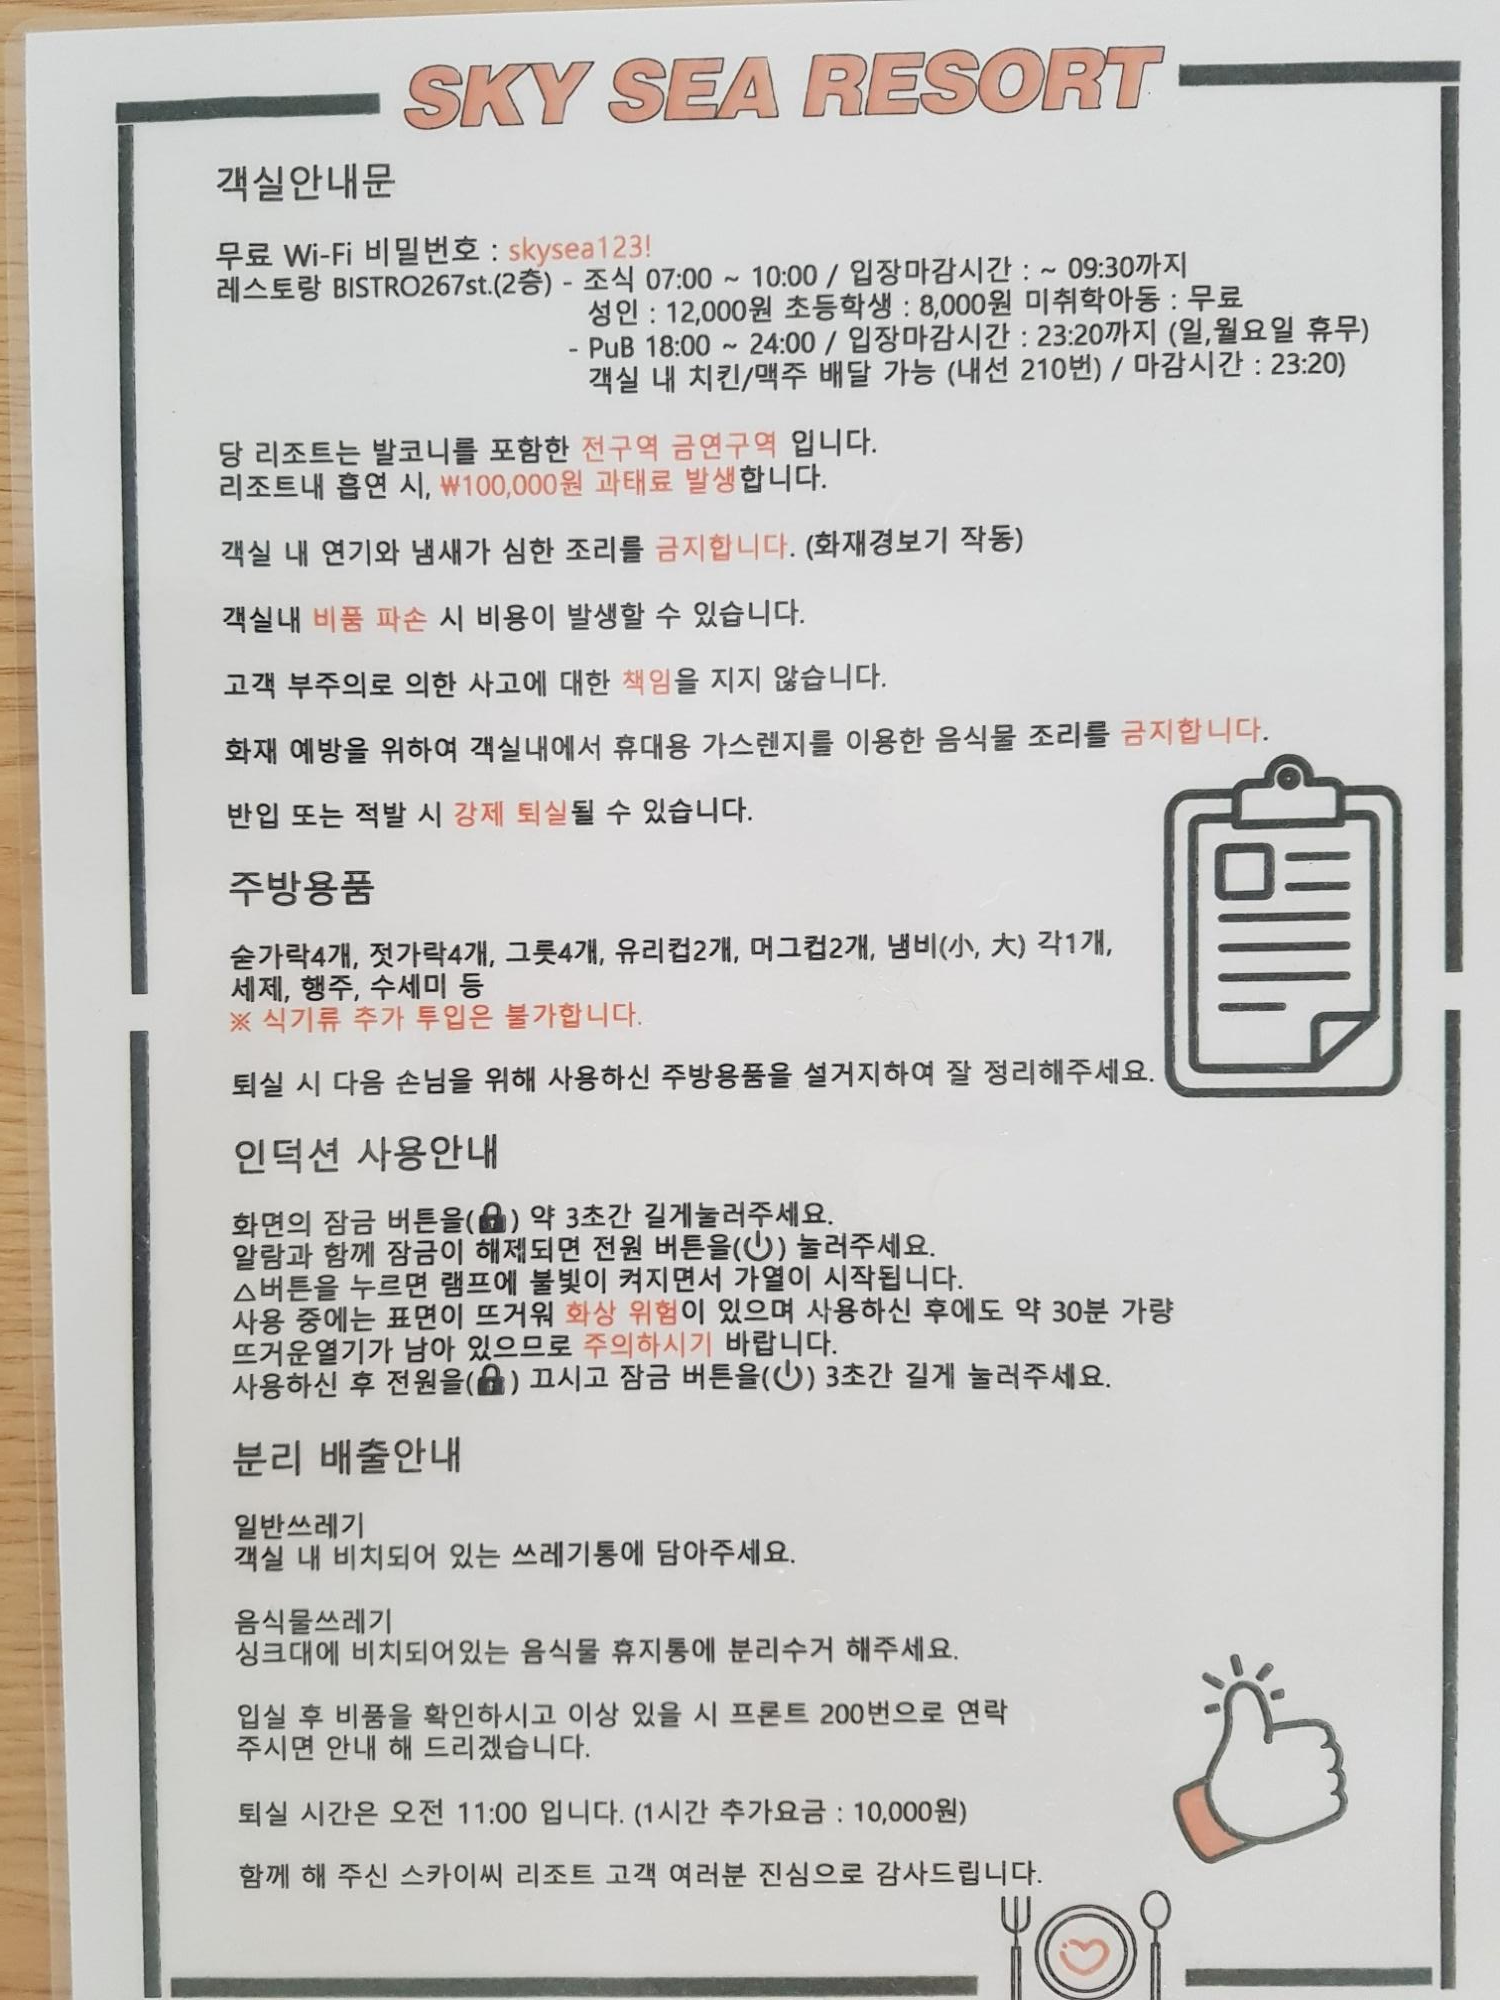 SKY SEA RESORT
객실안내문
무료 Wi-Fi 비밀번호 : skysea123!
레스토랑 BISTRO267st.(2층) - 조식 07:00 ~ 10:00 / 입장마감시간 : ~ 09:30까지
성인 : 12,000원 초등학생 : 8,000원 미취학아동 : 무료
- PuB 18:00 ~ 24:00 / 입장마감시간 : 23:20까지 (일,월요일 휴무)
객실 내 치킨/맥주 배달 가능 (내선 210번) / 마감시간 : 23:20)
당 리조트는 발코니를 포함한 전구역 금연구역 입니다.
리조트내 흡연 시, ₩100,000원 과태료 발생합니다.
객실 내 연기와 냄새가 심한 조리를 금지합니다. (화재경보기 작동)
객실내 비품 파손 시 비용이 발생할 수 있습니다.
고객 부주의로 의한 사고에 대한 책임을 지지 않습니다.
화재 예방을 위하여 객실내에서 휴대용 가스렌지를 이용한 음식물 조리를 금지합니다.
반입 또는 적발 시 강제 퇴실될 수 있습니다.
주방용품
숟가락4개, 젓가락4개, 그릇4개, 유리컵2개, 머그컵2개, 냄비(小, 大) 각1개,
세제, 행주, 수세미 등
※ 식기류 추가 투입은 불가합니다.
퇴실 시 다음 손님을 위해 사용하신 주방용품을 설거지하여 잘 정리해주세요.
인덕션 사용안내
화면의 잠금 버튼을(🔒) 약 3초간 길게눌러주세요.
알람과 함께 잠금이 해제되면 전원 버튼을(⏻) 눌러주세요.
△버튼을 누르면 램프에 불빛이 켜지면서 가열이 시작됩니다.
사용 중에는 표면이 뜨거워 화상 위험이 있으며 사용하신 후에도 약 30분 가량
뜨거운열기가 남아 있으므로 주의하시기 바랍니다.
사용하신 후 전원을(🔒) 끄시고 잠금 버튼을(⏻) 3초간 길게 눌러주세요.
분리 배출안내
일반쓰레기
객실 내 비치되어 있는 쓰레기통에 담아주세요.
음식물쓰레기
싱크대에 비치되어있는 음식물 휴지통에 분리수거 해주세요.
입실 후 비품을 확인하시고 이상 있을 시 프론트 200번으로 연락
주시면 안내 해 드리겠습니다.
퇴실 시간은 오전 11:00 입니다. (1시간 추가요금 : 10,000원)
함께 해 주신 스카이씨 리조트 고객 여러분 진심으로 감사드립니다.